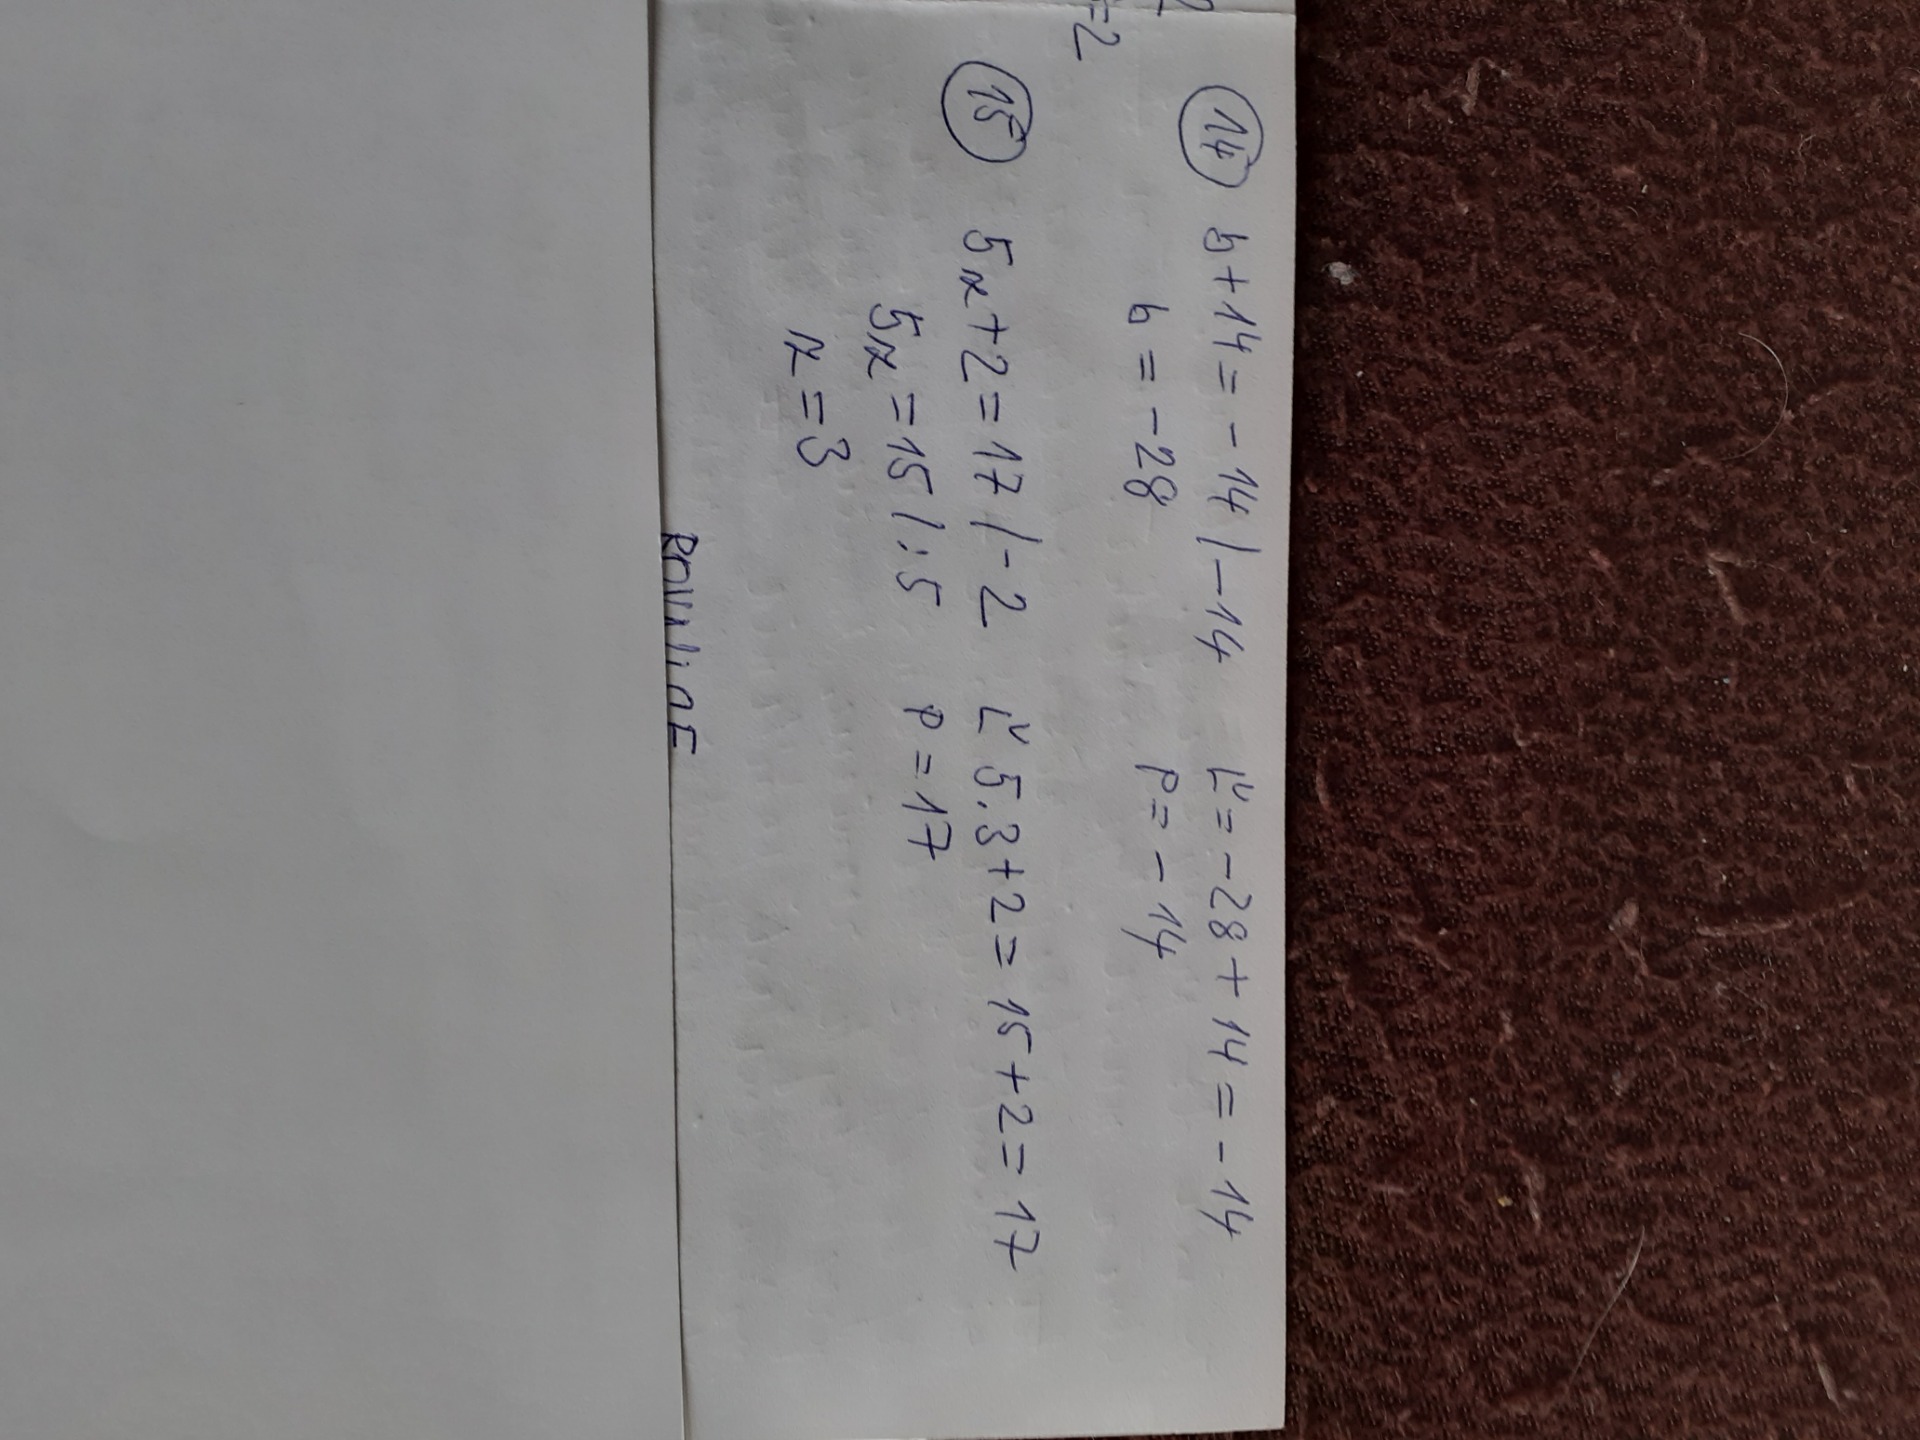 =2
14 b+14=-14/-14 Ľ=-28+14=-14
b=-28 P=-14
15 5x+2=17/-2 Ľ 5.3+2=15+2=17
5x=15/:5 P=17
x=3